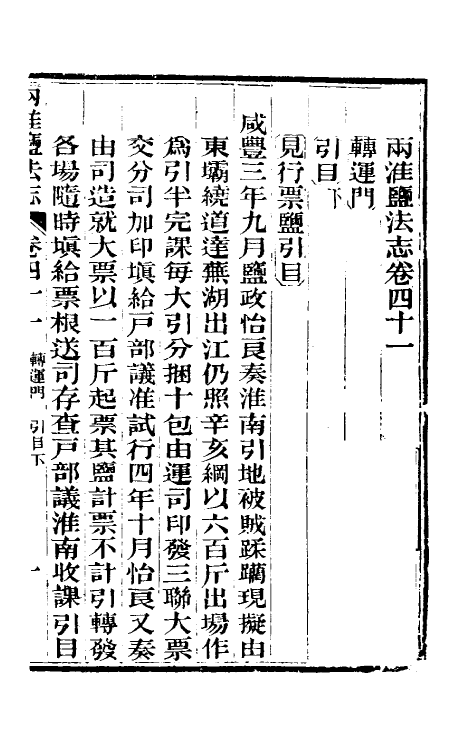 兩淮鹽法志卷四十一
轉運門
引目下
見行票鹽引目
咸豐三年九月鹽政怡良奏淮南引地被賊蹂躪現擬由
東壩繞道達蕪湖出江仍照辛亥綱以六百斤出場作
爲引半完課每大引分捆十包由運司印發三聯大票
交分司加印塡給戸部議准試行四年十月怡良又奏
由司造就大票以一百斤起票其鹽計票不計引轉發
各場隨時塡給票根送司存查戸部議淮南收課引目
兩淮鹽法志 卷四十一 轉運門 引目下 一